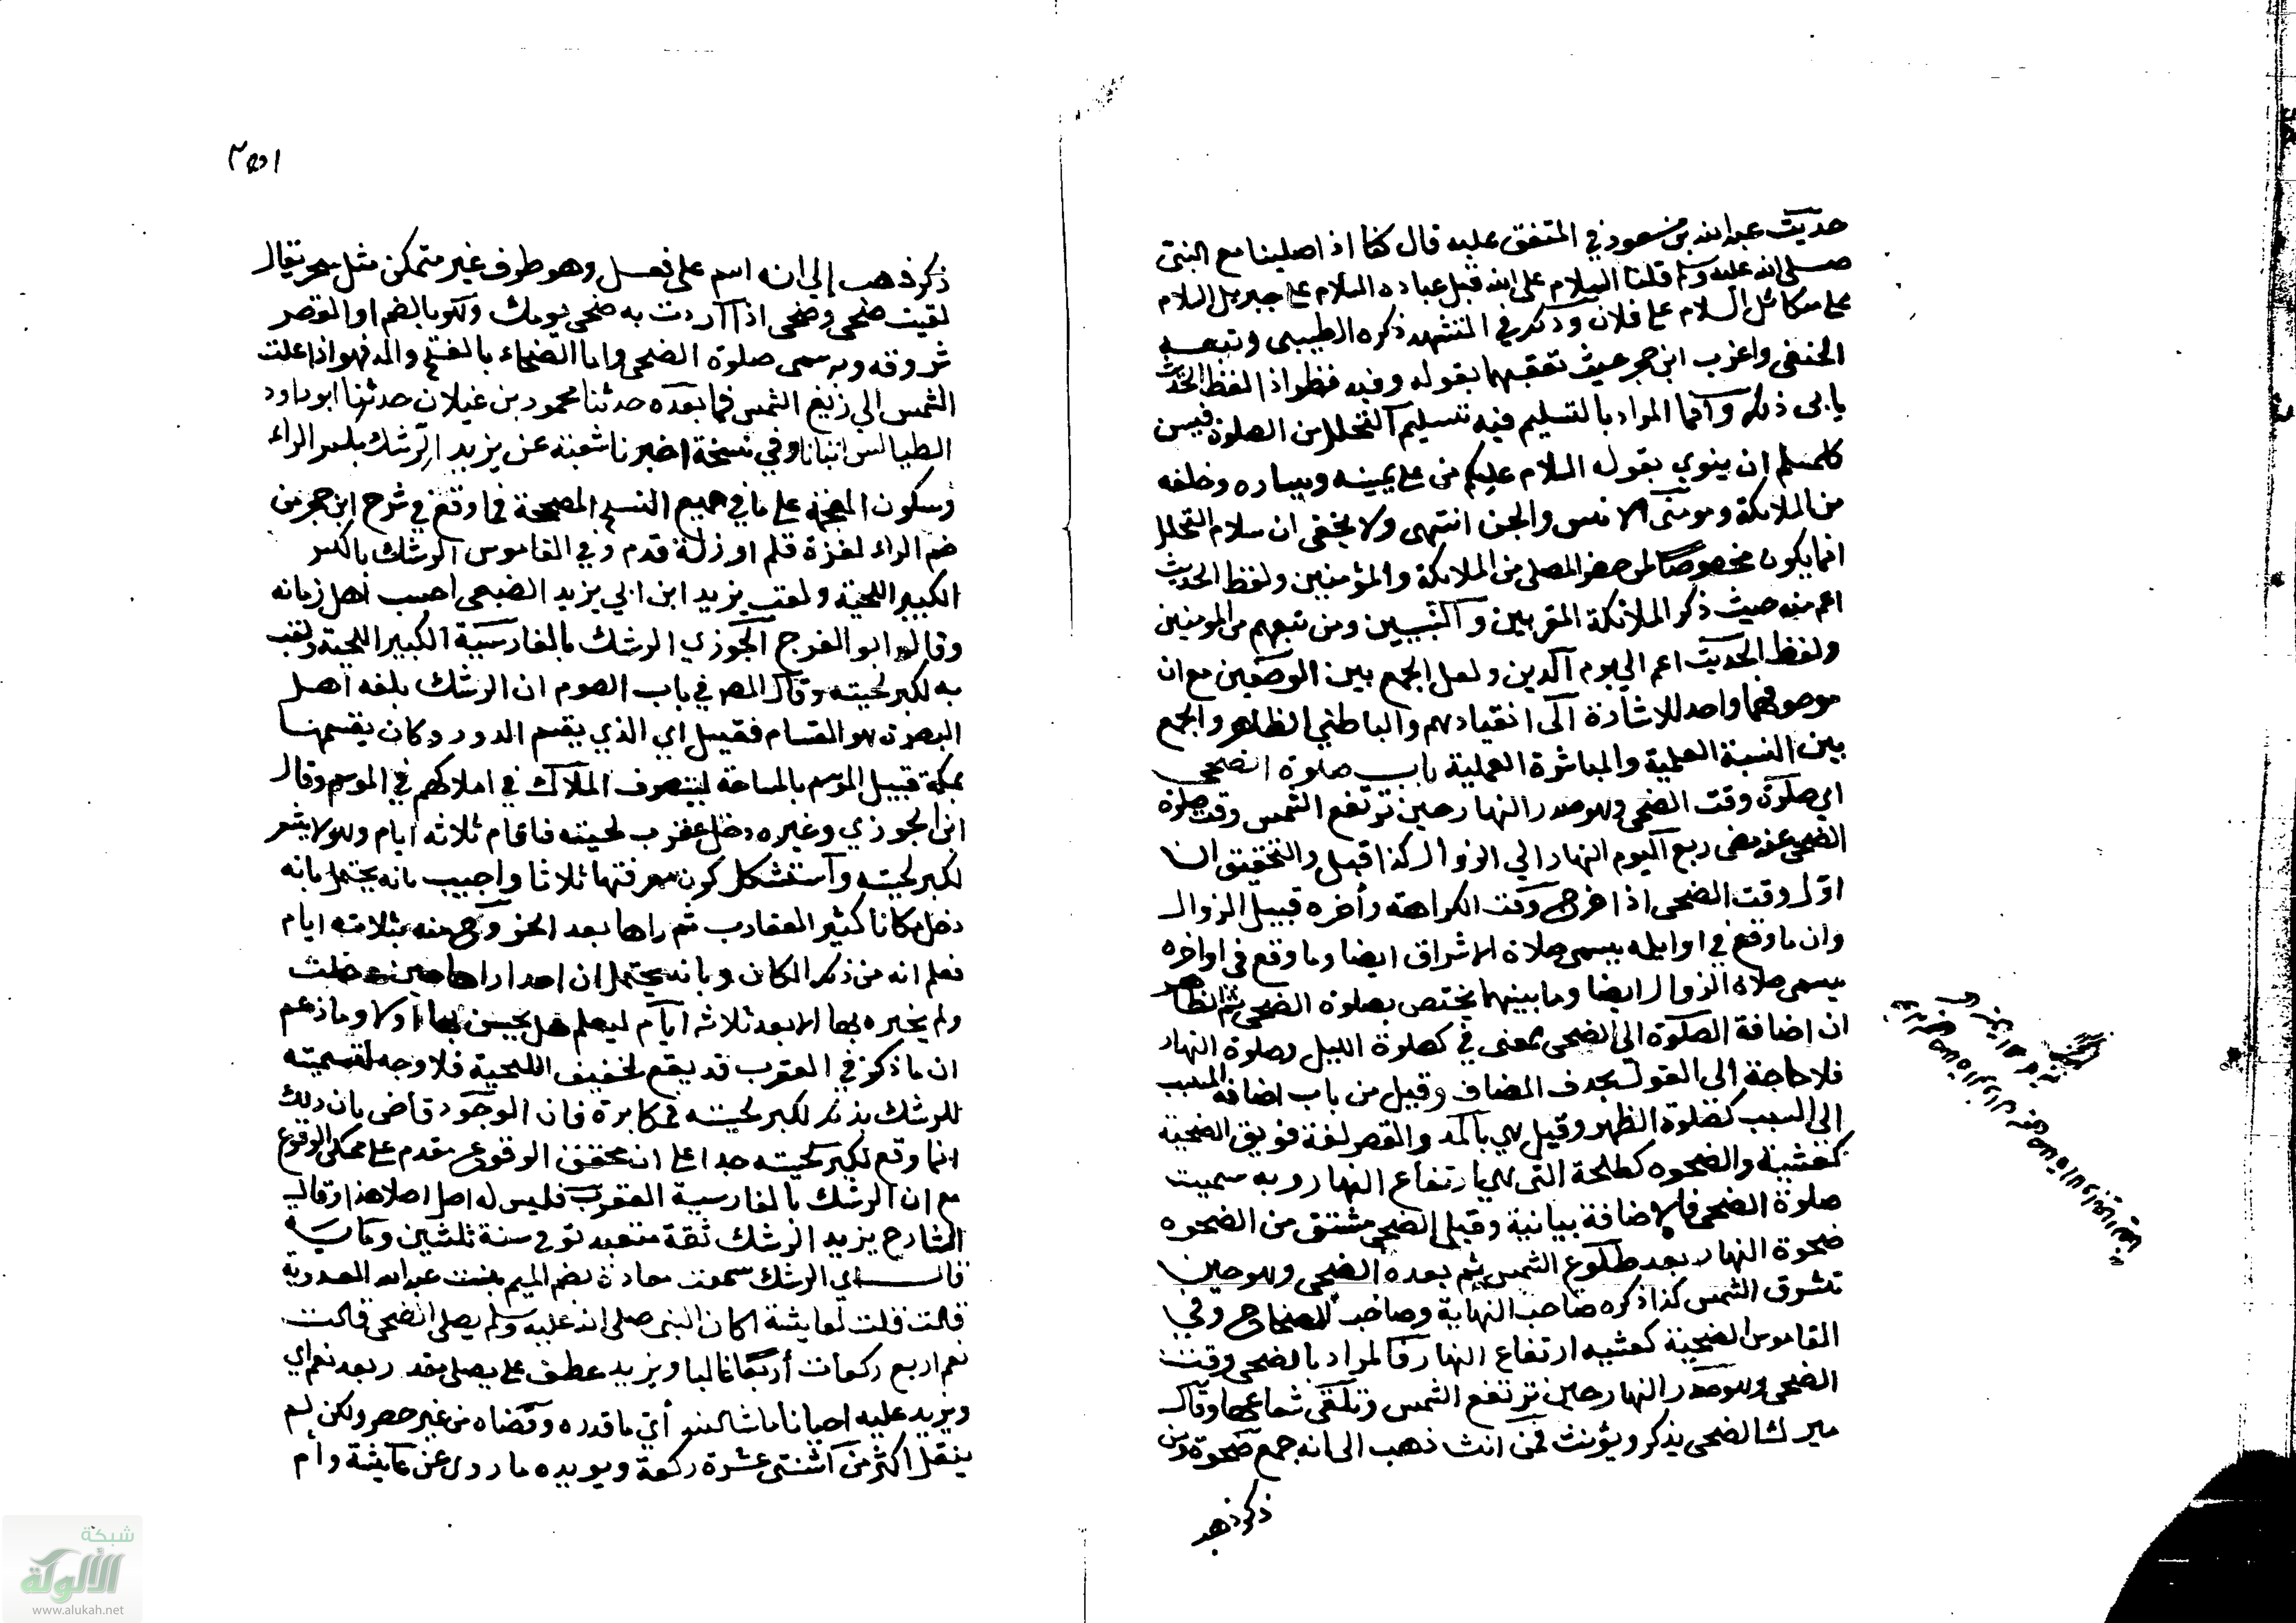 حديث عبد الله بن مسعود في المتفق عليه قال كنا اذا صلينا مع النبي
صلى الله عليه وسلم قلنا السلام على الله قبل عباده السلام على جبريل السلام
على ميكائل السلام على فلان وذكر في التشهد ذكره الطيبي وتبعه
الحنفي واغرب ابن حجر حيث تعقبهما بقوله وفيه نظر اذ لفظ الحديث
يابى ذلك وانما المراد بالتسليم فيه تسليم التحلل من الصلوة فيسن
للمسلم ان ينوي بقوله السلام عليكم من على يمينه ويساره وخلفه
من الملائكة ومومنى الانس والجن انتهى ولا يخفى ان سلام التحلل
انما يكون مخصوصا لمن حضر المصلى من الملائكة والمؤمنين ولفظ الحديث
اعم منه حيث ذكر الملائكة المقربين والنبيين ومن تبعهم من المومنين
ولفظ الحديث اعم الي يوم الدين ولعل الجمع بين الوصفين مع ان
موصوفهما واحد للاشارة الى انقيادهم والباطني الظاهر والجمع
بين النسبة العلمية والمباشرة العملية باب صلوة الضحى
اي صلوة وقت الضحى وهو صدر النهار حين ترتفع الشمس وقت صلوة
الضحى عند مضى ربع اليوم النهار الي الزوال كذا قيل والتحقيق ان
اول وقت الضحى اذا خرج وقت الكراهة وأخره قبيل الزوال
وان ما وقع في اوايله يسمى صلاة الاشراق ايضا وما وقع في اواخره
يسمى صلاة الزوال ايضا وما بينهما يختص بصلوة الضحى ثم الظاهر
ان اضافة الصلوة الى الضحى بمعنى في كصلوة الليل وصلوة النهار
فلا حاجة الى القول بحذف المضاف وقيل من باب اضافة المسبب
الى السبب كصلوة الظهر وقيل هي بالمد والقصر لغة فويق الضحية
كعشية والضحوه كطلحة التى هي ارتفاع النهار وبه سميت
صلوة الضحى فالاضافة بيانية وقيل الضحى مشتق من الضحوه
ضحوة النهار بعد طلوع الشمس ثم بعده الضحى وهو حين
تشرق الشمس كذا ذكره صاحب النهاية وصاحب الصحاح وفي
القاموس الضحية كعشيه ارتفاع النهار فالمراد بالضحى وقت
الضحى وهو صدر النهار حين ترتفع الشمس وتلقى شعاعها وقال
ميرك الضحى يذكر ويؤنث فمن انث ذهب الى انه جمع ضحوة ومن
ذكر ذهب
ذكر ذهب إلي انه اسم على فعل وهو ظرف غير متمكن مثل سحر يقال
لقيت ضحى وضحى اذا اردت به ضحى يومك وهو بالضم والقصر
شروقه وبه سمى صلوة الضحى واما الضحاء بالفتح والمد فهو اذا علت
الشمس الي زيغ الشمس فما بعده حدثنا محمود بن غيلان حدثنا ابو داود
الطيالسي انبانا وفي نسخة اخبرنا شعبة عن يزيد الرشك بكسر الراء
وسكون المعجمة على ما في جميع النسخ المصححة فما وقع في شرح ابن حجر من
ضم الراء لغزة قلم او زلة قدم وفي القاموس الرشك بالكسر
الكبير اللحية ولقب يزيد ابن ابي يزيد الضبعي احسب اهل زمانه
وقال ابو الفرج الجوزي الرشك بالفارسية الكبير اللحية ولقب
به لكبر لحيته وقال المص في باب الصوم ان الرشك بلغه اهل
البصرة هو القسام فقيل اي الذي يقسم الدور وكان يقسمها
بمكة قبيل الموسم بالمساحة ليتصرف الملاك في املاكهم في الموسم وقال
ابن الجوزي وغيره دخل عقرب لحيته فاقام ثلاثه ايام وهو لا يشعر
لكبر لحيته واستشكل كون معرفتها ثلاثا واجيب بانه يحتمل بانه
دخل مكانا كثير العقارب ثم راها بعد الخروج منه بثلاثة ايام
فعلم انه من ذلك المكان وبانه يحتمل ان احدا راها حين دخلت
ولم يخبره بها الا بعد ثلاثه ايام ليعلم هل يحس بها أولا وما زعم
ان ما ذكر في العقرب قد يقع لخفيف اللحية فلا وجه لتسميته
للرشك بذلك لكبر لحيته مكابرة فان الوجود قاض بان ذلك
انما وقع لكبر لحيته جدا على ان محقق الوقوع مقدم على ممكن الوقوع
مع ان الرشك بالفارسية العقرب فليس له اصل اصلا هذا وقال
الشارح يزيد الرشك ثقة متعبد توفي سنة ثلثين وماية
قال اي الرشك سمعت معاذة بضم الميم بنت عبد الله العدوية
قالت قلت لعايشة اكان النبي صلى الله عليه وسلم يصلى الضحى قالت
نعم اربع ركعات أربعا غالبا ويزيد عطف على يصلى مقدر بعد نعم اي
ويزيد عليه احيانا ما شاء الله أي ما قدره وقضاه من غير حصر ولكن لم
ينقل اكثر من اثنتى عشرة ركعة ويويده ما روى عن عايشة وأم
شبكة
الألوكة
www.alukah.net